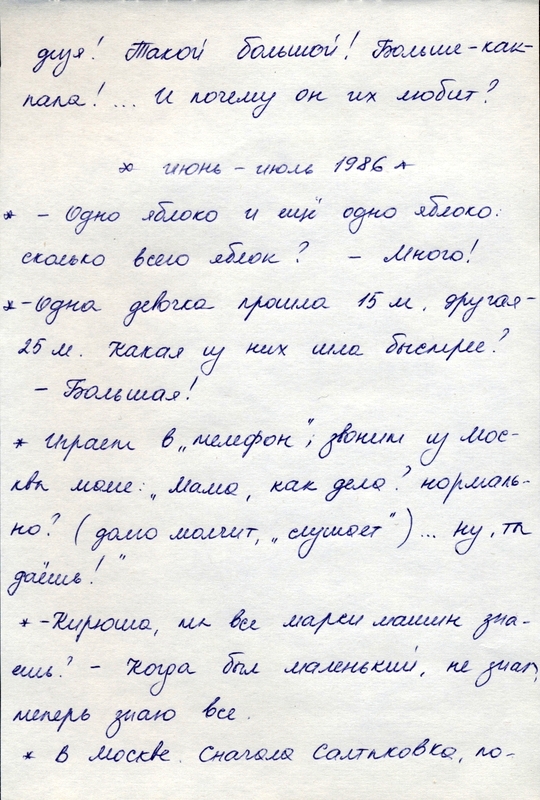 дузя! Такой большой! Больше-как-
папа!... И почему он их любит?
* июнь - июль 1986 *
* - Одно яблоко и ещё одно яблоко:
сколько всего яблок? - Много!
* - Одна девочка прошла 15 м, другая-
25 м. Какая из них шла быстрее?
- Большая!
* Играет в „телефон"; звонит из Мос-
квы маме: „Мама, как дела? нормаль-
но? (долго молчит, „слушает")... ну, ты
даёшь!"
* - Кирюша, ты все марки машин зна-
ешь? - Когда был маленький, не знал,
теперь знаю все.
* В Москве. Сначала Салтыковка, по-